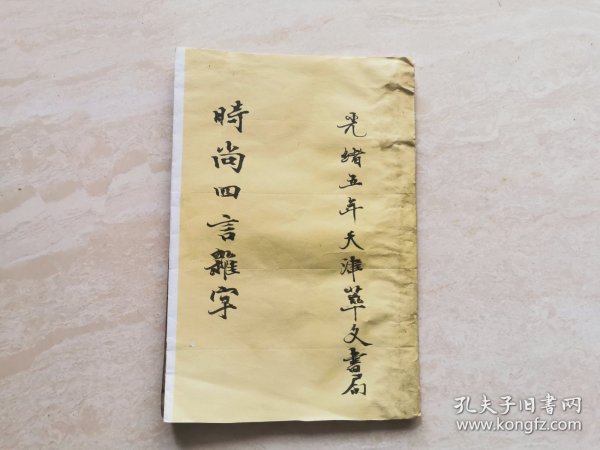 光緒五年天津萃文書局
時尚四言雜字
孔夫子旧书网
www.kongfz.com